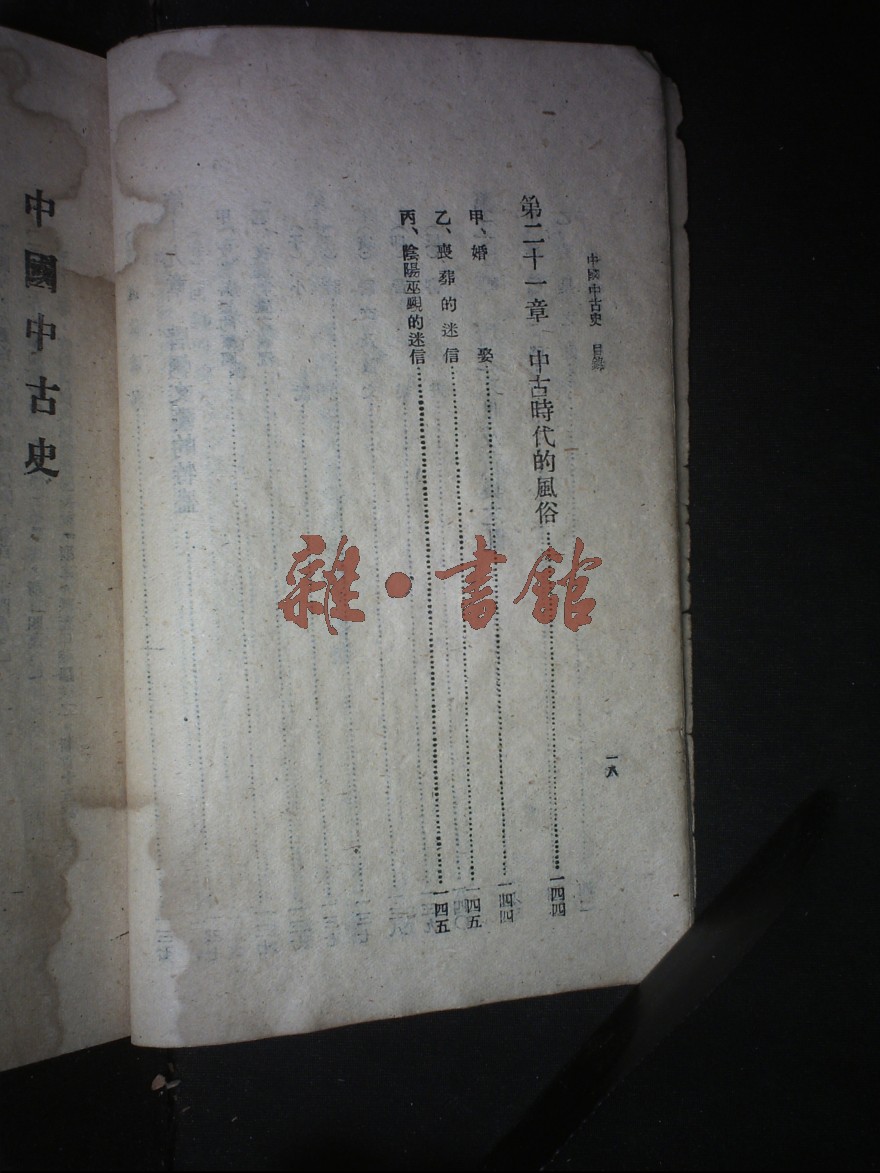 中國中古史 目錄
一八
第二十一章 中古時代的風俗……一四四
甲、婚娶……一四四
乙、喪葬的迷信……一四五
丙、陰陽巫覡的迷信……一四五
中國中古史
雜·書館